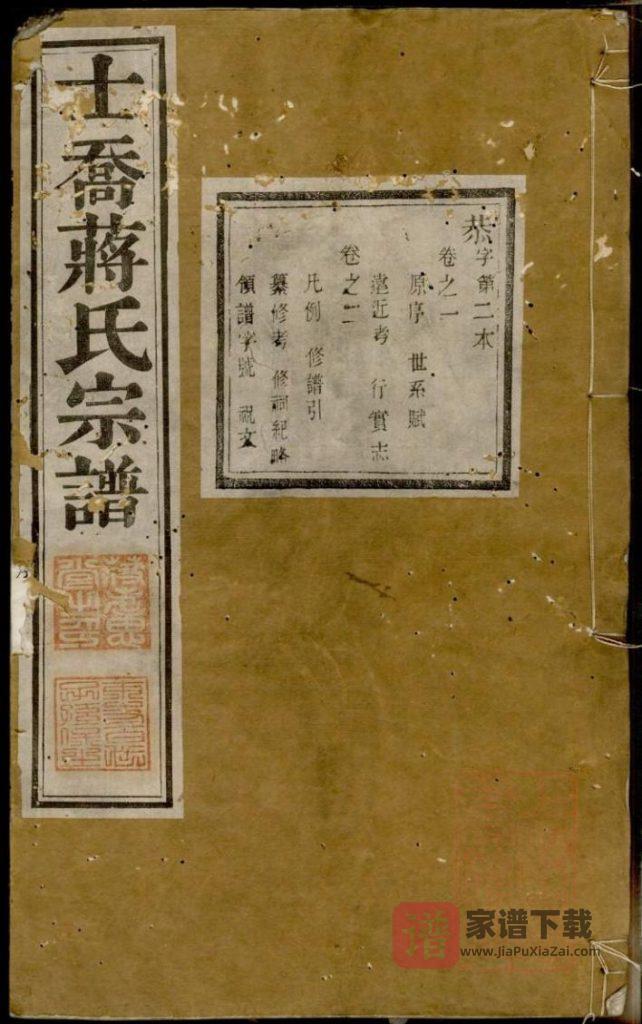 士喬蔣氏宗譜
恭字第二本
卷之一
原序 世系賦
遠近考 行實志
卷之二
凡例 修譜引
纂修考 修祠紀略
領譜字號 祝文
譜
家谱下载
www.JiaPuXiaZai.com